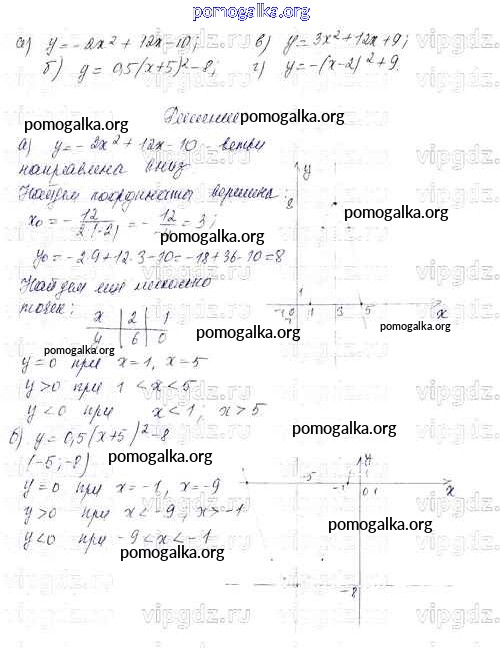 pomogalka.org
а) y = -2x² + 12x - 10; в) y = 3x² + 12x + 9;
б) y = 0,5(x+5)² - 8; г) y = -(x-2)² + 9.
Решение
pomogalka.org pomogalka.org
а) y = -2x² + 12x - 10 - ветви
направлена вниз
Найдем координаты вершины:
x₀ = - 12/2·(-2) = - 12/-4 = 3;
y₀ = -2·9 + 12·3 - 10 = -18 + 36 - 10 = 8
Найдем еще несколько
точек:
x | 2 | 1
y | 6 | 0
y = 0 при x = 1, x = 5
y > 0 при 1 < x < 5
y < 0 при x < 1; x > 5
y
8
1
0 1 3 5 x
б) y = 0,5(x+5)² - 8
(-5; -8)
y = 0 при x = -1, x = -9
y > 0 при x < -9, x > -1
y < 0 при -9 < x < -1
y
-5 -1 0 1 x
-8
pomogalka.org
pomogalka.org
pomogalka.org
pomogalka.org
pomogalka.org
pomogalka.org
pomogalka.org
pomogalka.org
pomogalka.org
vipgdz.ru